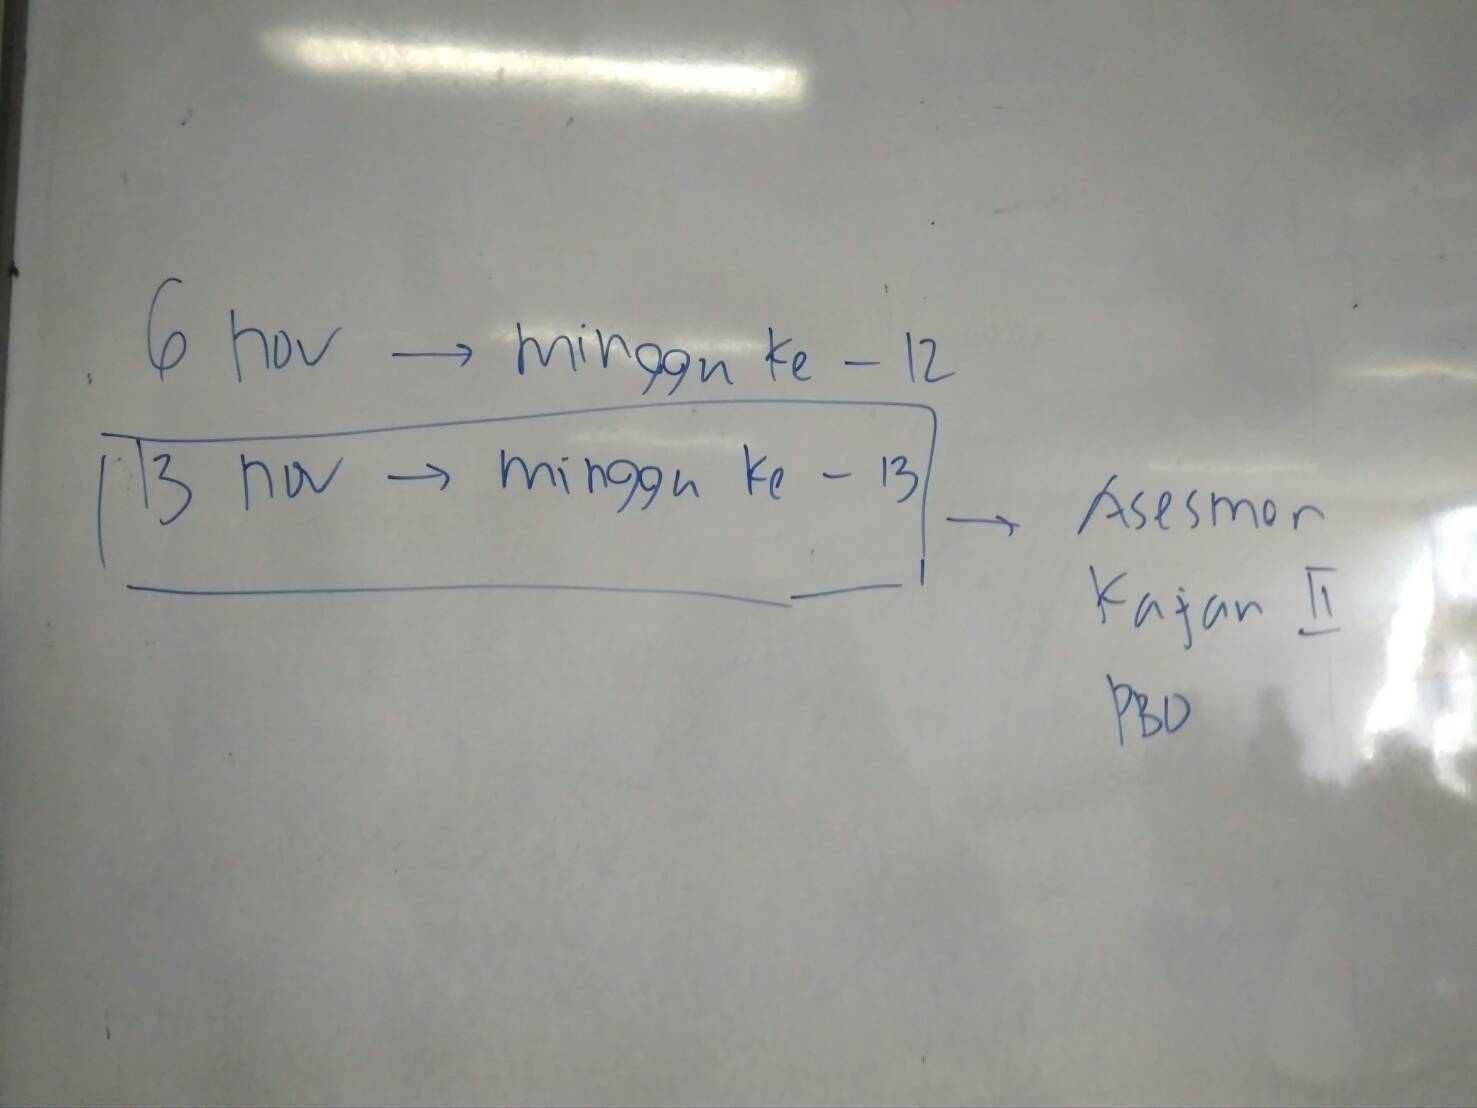 6 nov → minggu ke - 12
13 nov → minggu ke - 13 → Asesmen
Kajian II
PBO